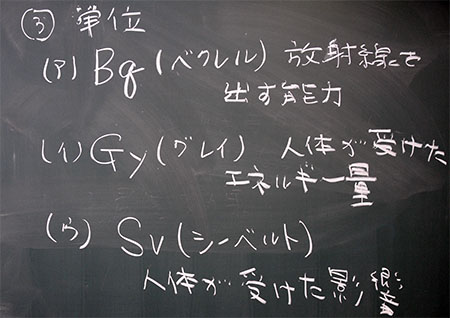 ③ 単位
(ア) Bq (ベクレル) 放射線を
出す能力
(イ) Gy (グレイ) 人体が受けた
エネルギー量
(ウ) Sv (シーベルト)
人体が受けた影響